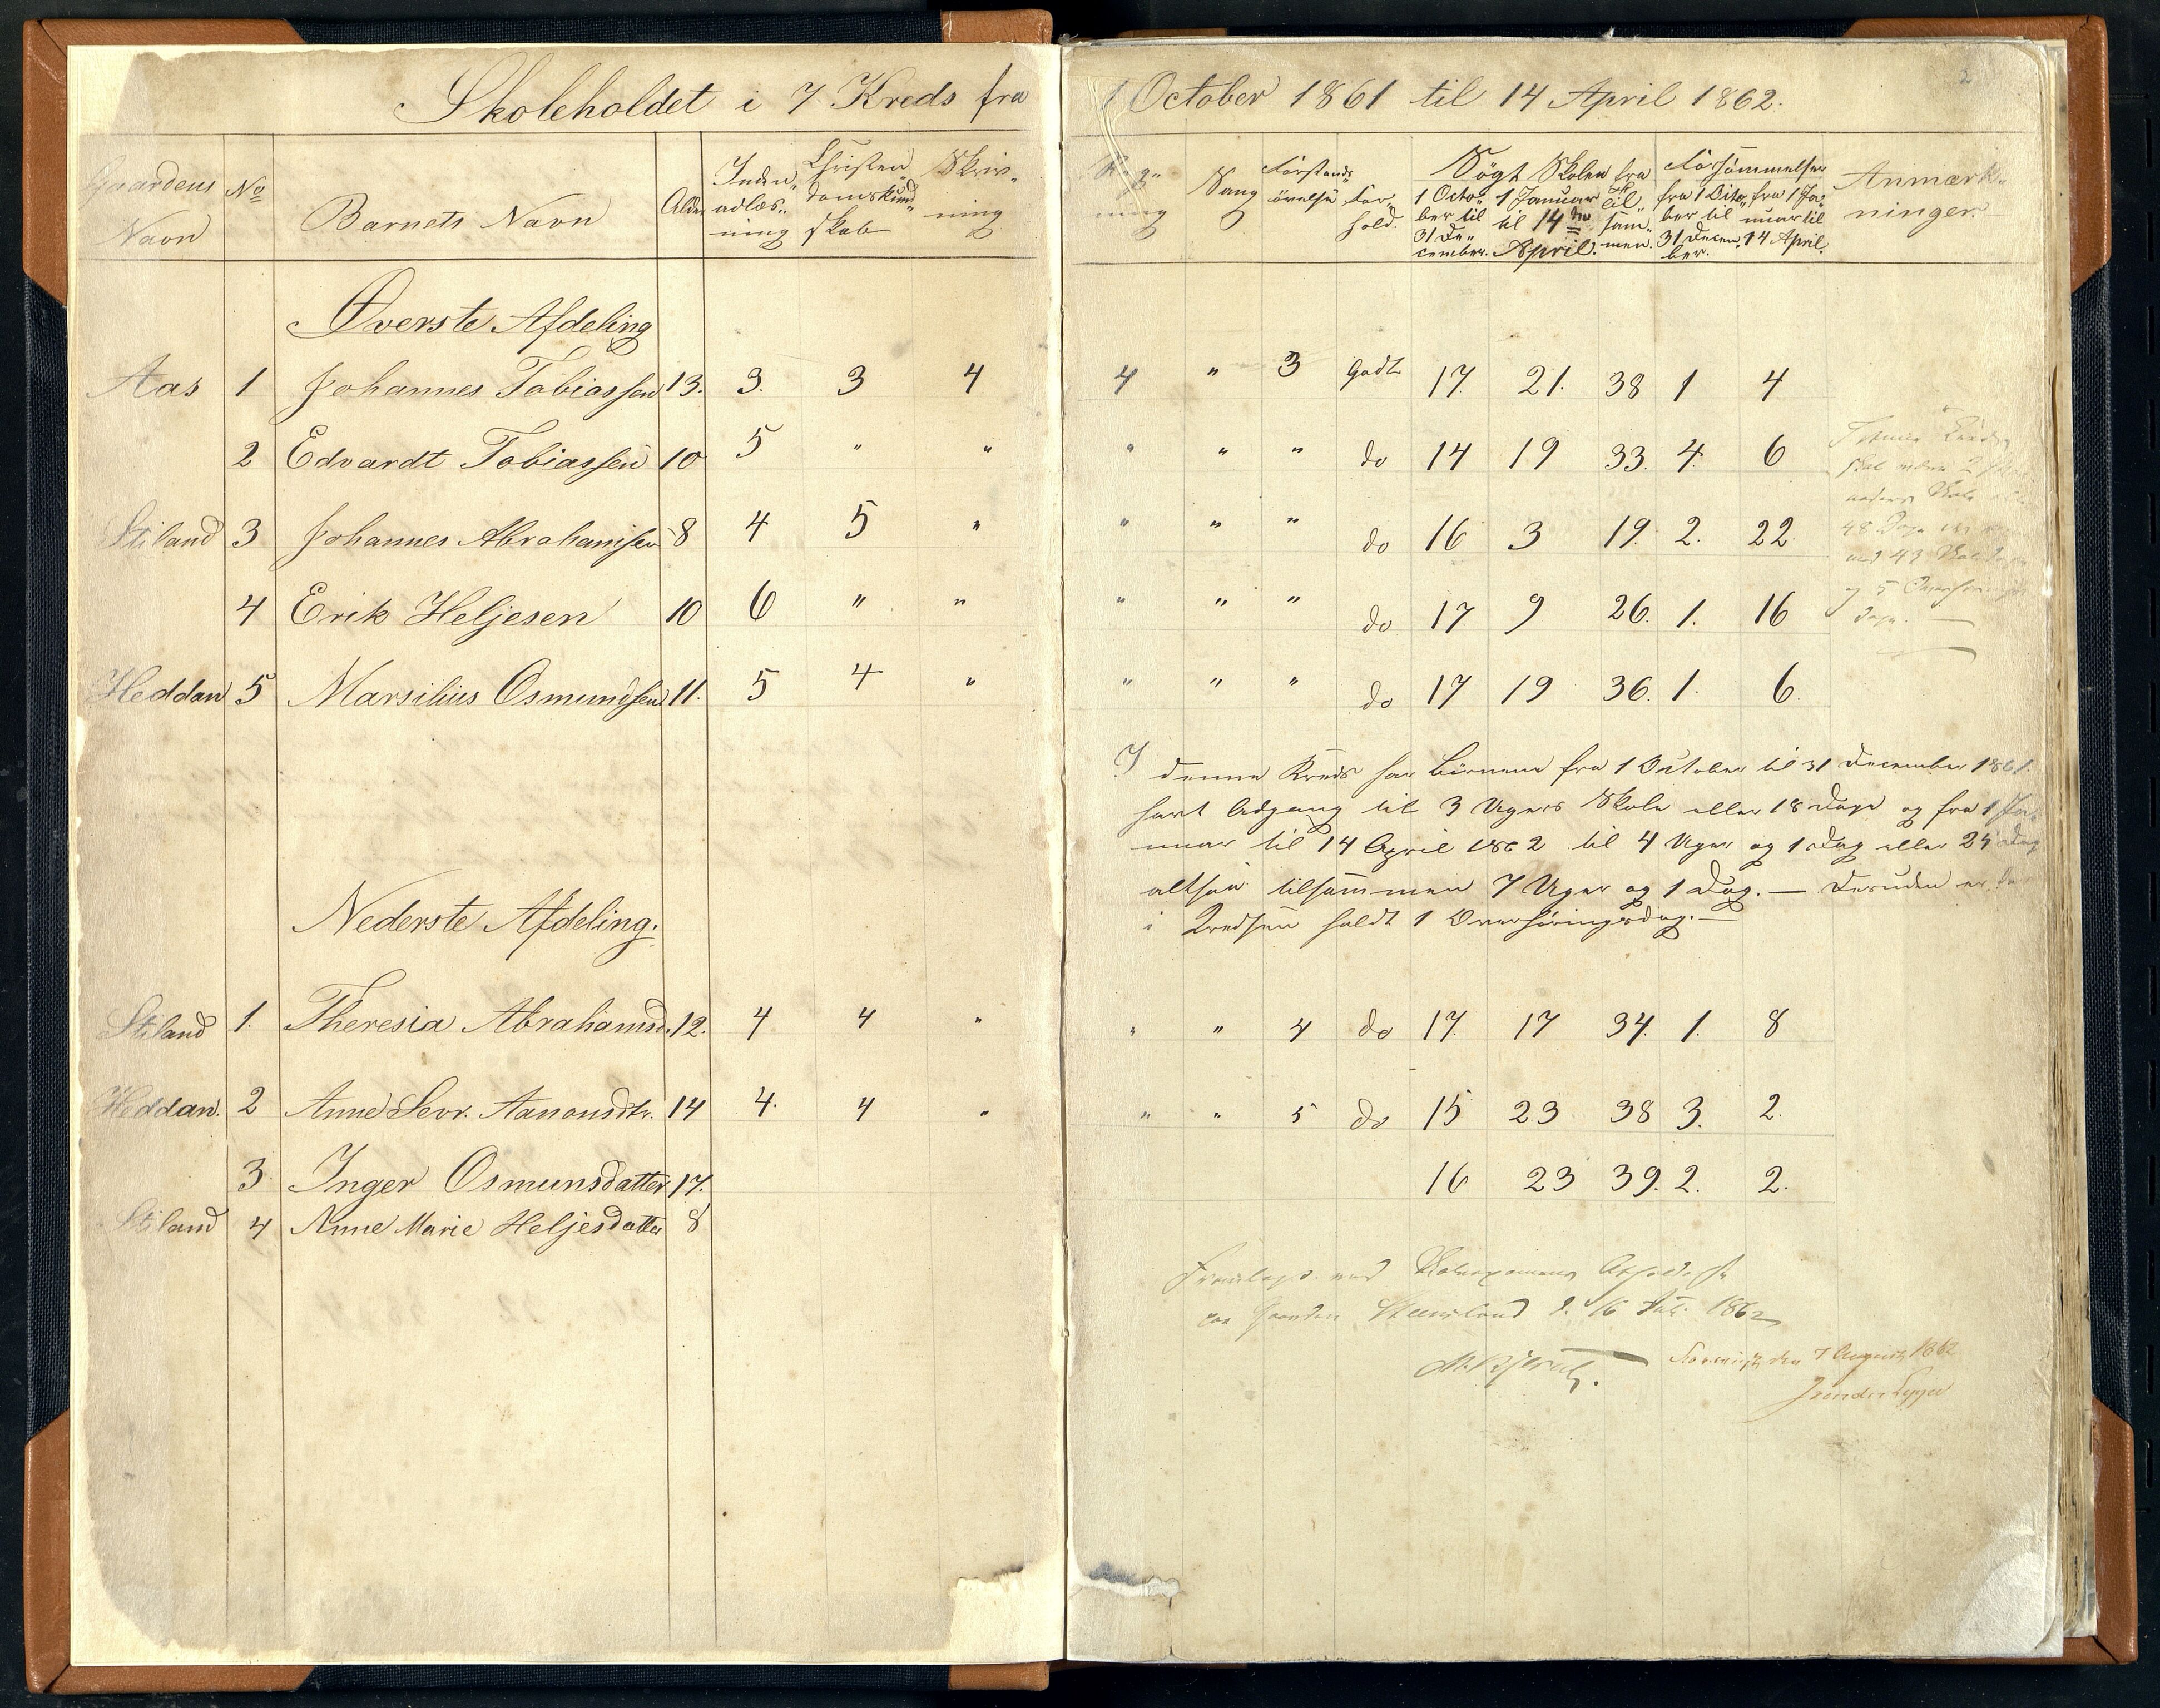 Skoleholdet i 7 Kreds fra 1 October 1861 til 14 April 1862.
2
Gaardens Navn
No
Barnets Navn
Alder
Inden„adlæs„ning
Christen„domskund„skab
Skriv„ning
Reg„ning
Sang
Forstands„øvelse
For„hold.
Søgt Skolen fra
1 Octo„ber til 31 De„cember.
1 Januar til 14de April.
til sam„men.
Forsømmelser
fra 1 Octo„ber til 31 Decem„ber.
fra 1 Ja„nuar til 14 April.
Anmærk„ninger.
Øverste Afdeling
Aas 1 Johannes Tobiassen 13. 3. 3 4 4 " 3 Godt 17. 21. 38 1 4
2 Edvardt Tobiassen 10 5 " " " " " do 14 19 33. 4. 6
Stiland 3 Johannes Abrahamsen 8 4 5 " " " " do 16 3 19. 2. 22.
4 Erik Heljesen 10 6 " " " " " do 17 9 26. 1. 16
Heddan 5 Marsilius Osmundsen 11. 5 4 " " " " do 17 19 36. 1. 6.
skal
48 Dage
43
og 5
Dage.
I denne Kreds har Børnene fra 1 October til 31 December 1861.
havt Adgang til 3 Ugers Skole eller 18 Dage og fra 1 Ja„
nuar til 14 April 1862 til 4 Uger og 1 Dag eller 25 Dag
altsaa tilsammen 7 Uger og 1 Dag. — Desuden er
i Kredsen holdt 1 Overhøringsdag. —
Nederste Afdeling.
Stiland 1. Theresia Abrahamsd. 12. 4 4 " " " 4 do 17. 17 34. 1. 8
Heddan. 2 Anne Sevr. Aanonsdtr. 14 4. 4 " " " 5 do 15 23 38 3. 2.
3 Inger Osmunsdatter 17. 16 23 39. 2. 2.
Stiland 4 Anne Marie Heljesdatter 8
Fremlagt ved
paa Gaarden 16 1862
den 7 August 1862